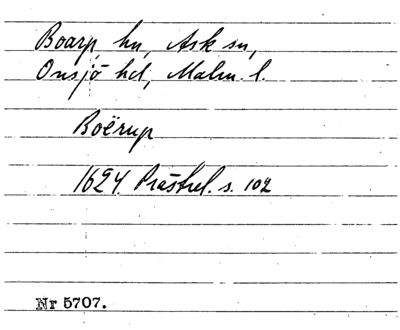 Boarp, hn, Ask sn,
Onsjö hd, Malm. l.
Boërup
1624. Prästrel. s. 102
Nr 5707.